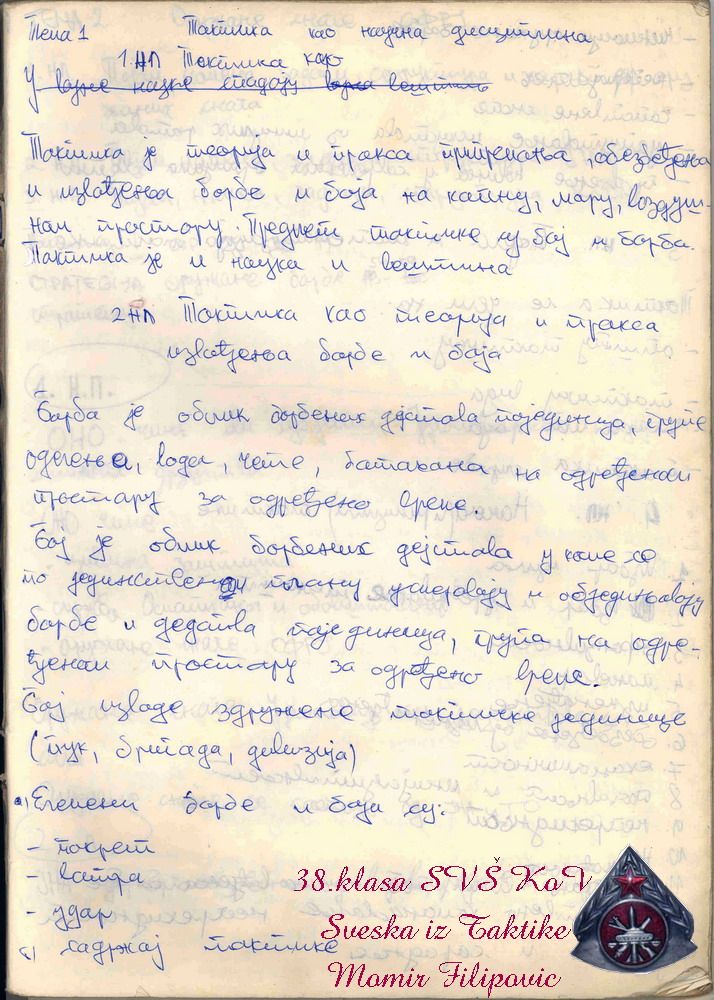 Тема 1 Тактика као научна дисциплина
1. НП Тактика као
У војне науке спадају војна вештина
Тактика је теорија и пракса припремања, обезбеђења
и извођења борбе и боја на копну, мору, ваздуш-
ном простору. Предмет тактике су бој и борба.
Тактика је и наука и вештина
2 НП Тактика као теорија и пракса
извођења борбе и боја
Борба је облик борбених дејстава појединца, групе
одељења, вода, чете, батаљона на одређеном
простору за одређено време
Бој је облик борбених дејстава у коме се
по јединственом плану усмеравају и обједињавају
борбе и дејства појединца, група на одре-
ђеном простору за одређено време.
Бој изводе здружене тактичке јединице
(пук, бригада, дивизија)
а) Елементи борбе и боја су:
- покрет
- ватра
- удар
б) садржај тактике
38.klasa SVŠ KoV
Sveska iz Taktike
Momir Filipovic